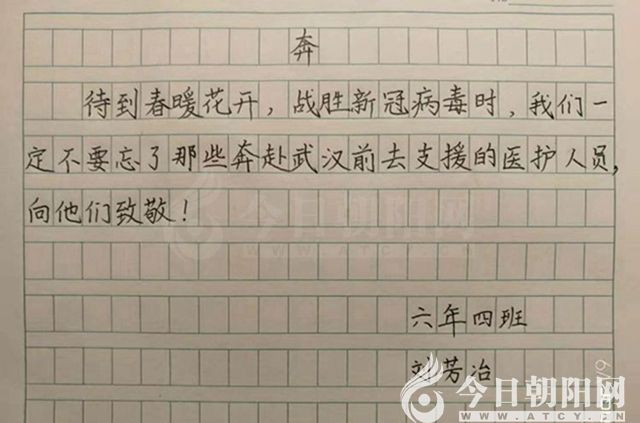 奔
待到春暖花开，战胜新冠病毒时，我们一
定不要忘了那些奔赴武汉前去支援的医护人员，
向他们致敬！
今日朝阳网
六年四班
刘芳冶
今日朝阳网
WWW.ATCY.CN